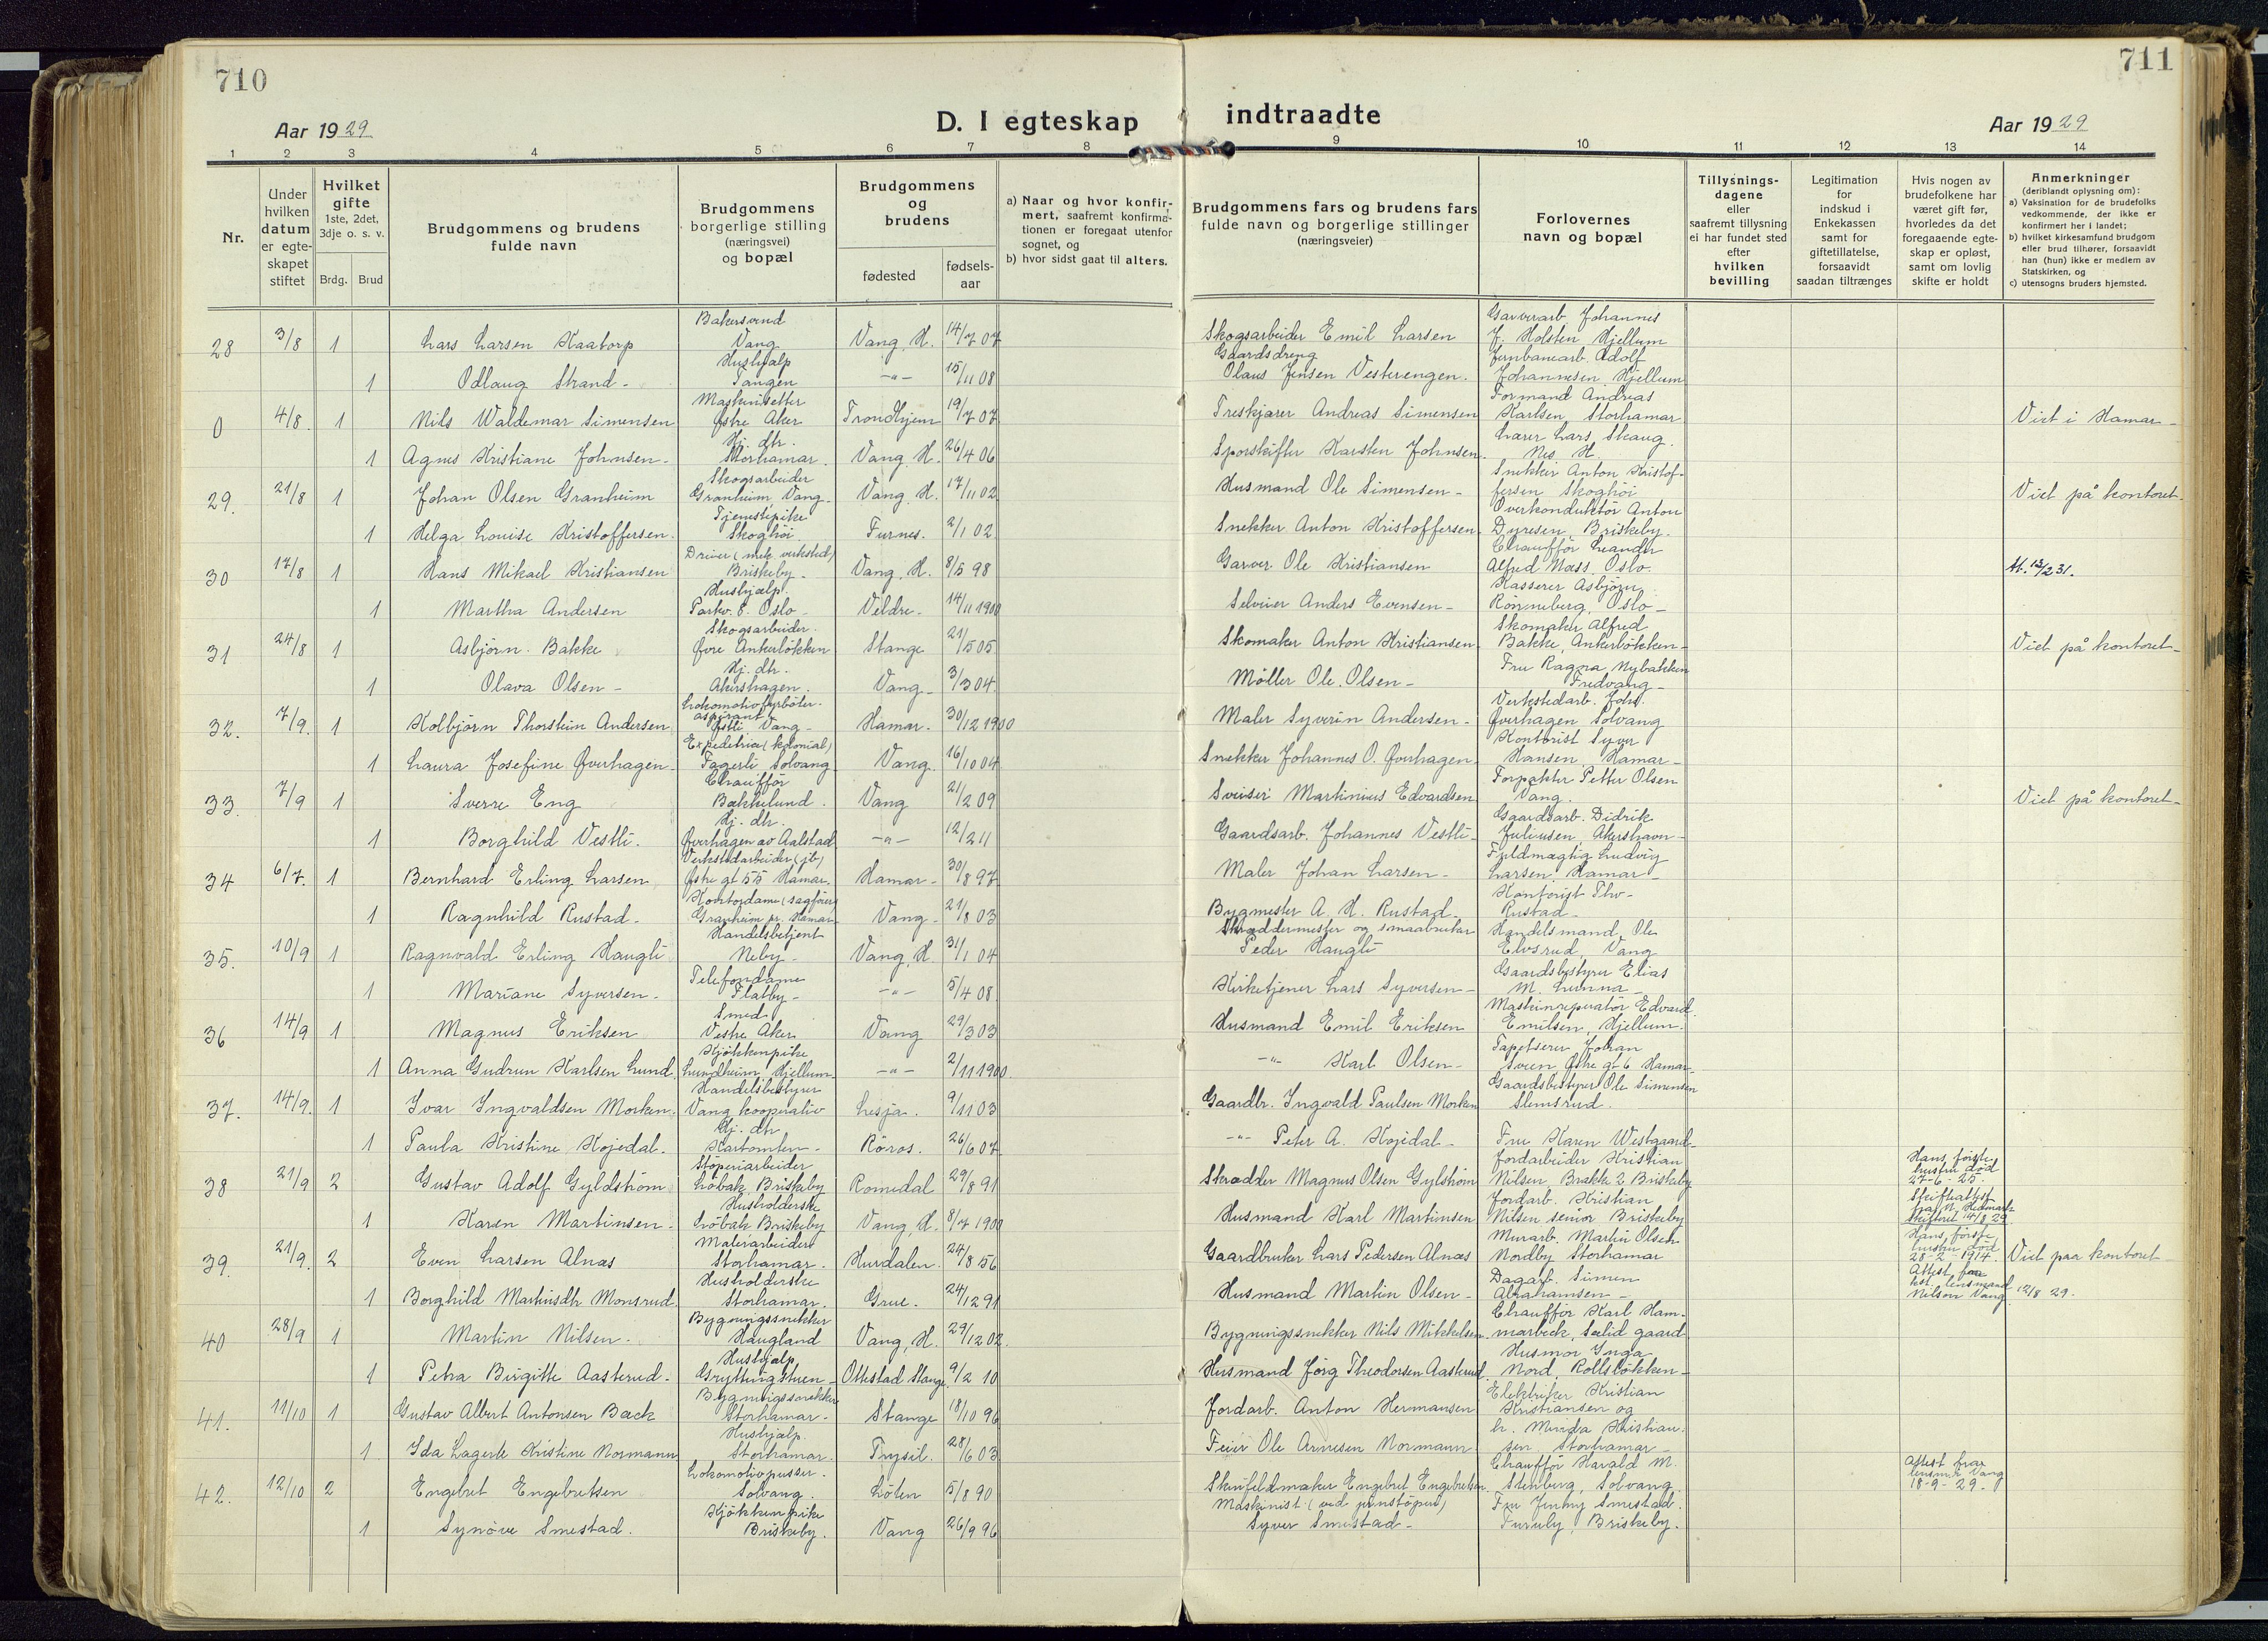 710
711
Aar 1929
D. I egteskap indtraadte
Aar 1929
1 2 3 4 5 6 7 8 9 10 11 12 13 14
Nr.
Under hvilken datum er egteskapet stiftet
Hvilket gifte 1ste, 2det, 3dje o. s. v.
Brdg. Brud
Brudgommens og brudens fulde navn
Brudgommens borgerlige stilling (næringsvei) og bopæl
Brudgommens og brudens
fødested
fødsels-aar
a) Naar og hvor konfirmert, saafremt konfirmationen er foregaat utenfor sognet, og
b) hvor sidst gaat til alters.
Brudgommens fars og brudens fars fulde navn og borgerlige stillinger (næringsveier)
Forlovernes navn og bopæl
Tillysningsdagene eller saafremt tillysning ei har fundet sted efter hvilken bevilling
Legitimation for indskud i Enkekassen samt for giftetillatelse, forsaavidt saadan tiltrænges
Hvis nogen av brudefolkene har været gift før, hvorledes da det foregaaende egteskap er opløst, samt om lovlig skifte er holdt
Anmerkninger (deriblandt oplysning om):
a) Vaksination for de brudefolks vedkommende, der ikke er konfirmert her i landet;
b) hvilket kirkesamfund brudgom eller brud tilhører, forsaavidt han (hun) ikke er medlem av Statskirken, og
c) utensogns bruders hjemsted.
28 3/8 1 Lars Larsen Kaatorp Bakersvend Vang Vang, H. 14/7 07 Skogsarbeider Emil Larsen Garverarb. Johannes J. Holsten Hjellum
1 Odlaug Strand - Hushjælp Tangen -"- 15/11 08 Gaardsdreng Olaus Jensen Vesterengen. Jernbanearb. Adolf Johannesen Hjellum
0 4/8. 1 Nils Waldemar Simensen Maskinsetter Østre Aker Trondhjem 19/7 07 Treskjærer Andreas Simensen Formand Andreas Karlsen Storhamar Viet i Hamar -
1 Agnes Kristiane Johnsen - Hj. dtr. Storhamar. Vang. H. 26/4 06 Sporskifter Karsten Johnsen. Lærer Lars Skaug. Nes H.
29. 21/8 1 Johan Olsen Granheim Skogsarbeider Granheim Vang - Vang H. 17/11 02 Husmand Ole Simensen - Snekker Anton Kristoffersen Skoghøi Viet på kontoret -
1 Helga Louise Kristoffersen. Tjenestepike Skoghøi Furnes. 2/1 02 Snekker Anton Kristoffersen Overkonduktør Anton Dyresen, Briskeby.
30 17/8 1 Hans Mikael Kristiansen Dreier (mek. verksted) Briskeby - Vang. H. 8/5 98 Garver Ole Kristiansen Chauffør Leander Alfred Mass, Oslo. 13/2 31.
1 Martha Andersen Hushjælp. Parkv. 8. Oslo - Veldre - 14/11 1900 Selveier Anders Evensen - Kasserer Asbjørn Rønneberg, Oslo -
31 24/8 1 Asbjørn Bakke Skogsarbeider. Øvre Ankerløkken Stange 21/5 05 Skomaker Anton Kristiansen Skomaker Alfred Bakke, Ankerløkken - Viet på kontoret -
1 Olava Olsen - Hj. dtr. Akershagen. Vang - 3/3 04. Møller Ole Olsen - Fru Ragna Nybakken Fredvang -
32. 7/9. 1 Kolbjørn Thorstein Andersen Lokomotivfyrbøter. aspirant Østre Vang - Hamar - 30/12 1900 Maler Syverin Andersen - Verkstedarb. Johs. Øverhagen Solvang
1 Laura Josefine Øverhagen - Expeditrice (kolonial) Fagerli Solvang Vang. 16/10 04 Snekker Johannes O. Øverhagen Kontorist Syver Hansen, Hamar -
33. 7/9 1 Sverre Eng Chauffør Bakkelund. Vang 21/2 09 Sveiser Martinius Edvardsen Forpakter Petter Olsen Vang. Viet på kontoret -
1 Borghild Vestli. Hj. dtr. Øverhagen av Aalstad -"- 12/2 11 Gaardsarb. Johannes Vestli - Gaardsarb. Didrik Juliussen, Akershavn -
34 6/7. 1 Bernhard Erling Larsen Verkstedarbeider (jb) Østre gt 55 Hamar. Hamar - 30/8 97 Maler Johan Larsen - Fuldmægtig Ludvig Larsen. Hamar -
1 Ragnhild Rustad - Kontordame (sagfører) Granheim pr. Hamar Vang - 21/8 03 Bygmester A. H. Rustad Kontorist Thv. Rustad -
35. 10/9 1 Ragnvald Erling Haugli Handelsbetjent Neby - Vang, H. 31/1 04 Skræddermester og smaabruker Peder Haugli Handelsmand Ole Elvsrud, Vang
1 Mariane Syversen - Telefondame Flatby - -"- 5/4 08 Kirketjener Lars Syversen - Gaardsbestyrer Elias M. Lunna -
36 14/9 1 Magnus Eriksen Smed Vestre Aker Vang 29/3 03 Husmand Emil Eriksen Maskinreparatør Edvard Emilsen, Hjellum.
1 Anna Gudrun Karlsen Lund Kjøkkenpike Lundheim, Hjellum - -"- 2/11 1900 -"- Karl Olsen - Tapetserer Johan Sveen Østre gt 6 Hamar -
37. 14/9. 1 Ivar Ingvaldsen Morken. Handelsbestyrer Vang kooperativ Lesja. 9/11 03 Gaardbr. Ingvald Paulsen Morken Gaardsbestyrer Ole Simensen Slemsrud.
1 Paula Kristine Kojedal. Hj. dtr Kartomten - Røros. 26/6 07 -"- Peter A. Kojedal - Fru Karen Westgaard -
38 21/9 2 Gustav Adolf Gyldstrøm Støperiarbeider Løbak, Briskeby Romedal 29/8 91 Skrædder Magnus Olsen Gylstrøm Jordarbeider Kristian Nilsen, Brakke 2 Briskeby Hans første hustru død 27-6-25. Skifteattest fra N. Hedmark skifteret 14/8 29
1 Karen Martinsen - Husholderske Løbak Briskeby Vang, H. 8/7 1900 Husmand Karl Martinsen Jordarb. Kristian Nilsen senior Briskeby
39. 21/9. 2 Even Larsen Alnæs Malerarbeider Storhamar. Hurdalen. 24/8 56 Gaardbruker Lars Pedersen Alnæs Murarb. Martin Olsen Nordby Storhamar Hans første hustru død 28-2-1914. Attest fra kst. lensmand Nilsen Vang 12/8 29. Viet paa kontoret
1 Borghild Martinsdtr Monsrud. Husholderske Storhamar. Grue. 24/12 91 Husmand Martin Olsen - Dagarb. Simen Abrahamsen -
40 28/9 1 Martin Nilsen. Bygningssnekker Haugland Vang, H. 29/12 02. Bygningssnekker Nils Mikkelsen Chauffør Karl Hammarbeck, Sælid gaard
1 Petra Birgitte Aasterud - Hushjælp Gryttingstuen - Ottestad Stange 9/2 10 Husmand Jørg Theodorsen Aasterud Husmor Inga Nord, Rollsløkken -
41. 11/10 1 Gustav Albert Antonsen Back Bygningssnekker Storhamar - Stange 18/10 96 Jordarb. Anton Hermansen Elektriker Kristian Kristiansen og
1. Ida Lagerte Kristine Normann Hushjælp. Storhamar. Trysil. 28/6 03 Feier Ole Arnesen Normann fr. Minda Kristiansen, Storhamar -
42. 12/10 2 Engebret Engebretsen Lokomotivpusser. Solvang. Løten 5/8 90 Skindfeldmaker Engebret Engebretsen. Chauffør Harald M. Stenberg, Solvang. Attest fra lensm. i Vang 18-9-29.
1 Synøve Smestad. Kjøkkenpike Briskeby. Vang 26/9 96 Maskinist (ved jernstøperi) Syver Smestad - Fru Jenny Smestad. Furuly, Briskeby.